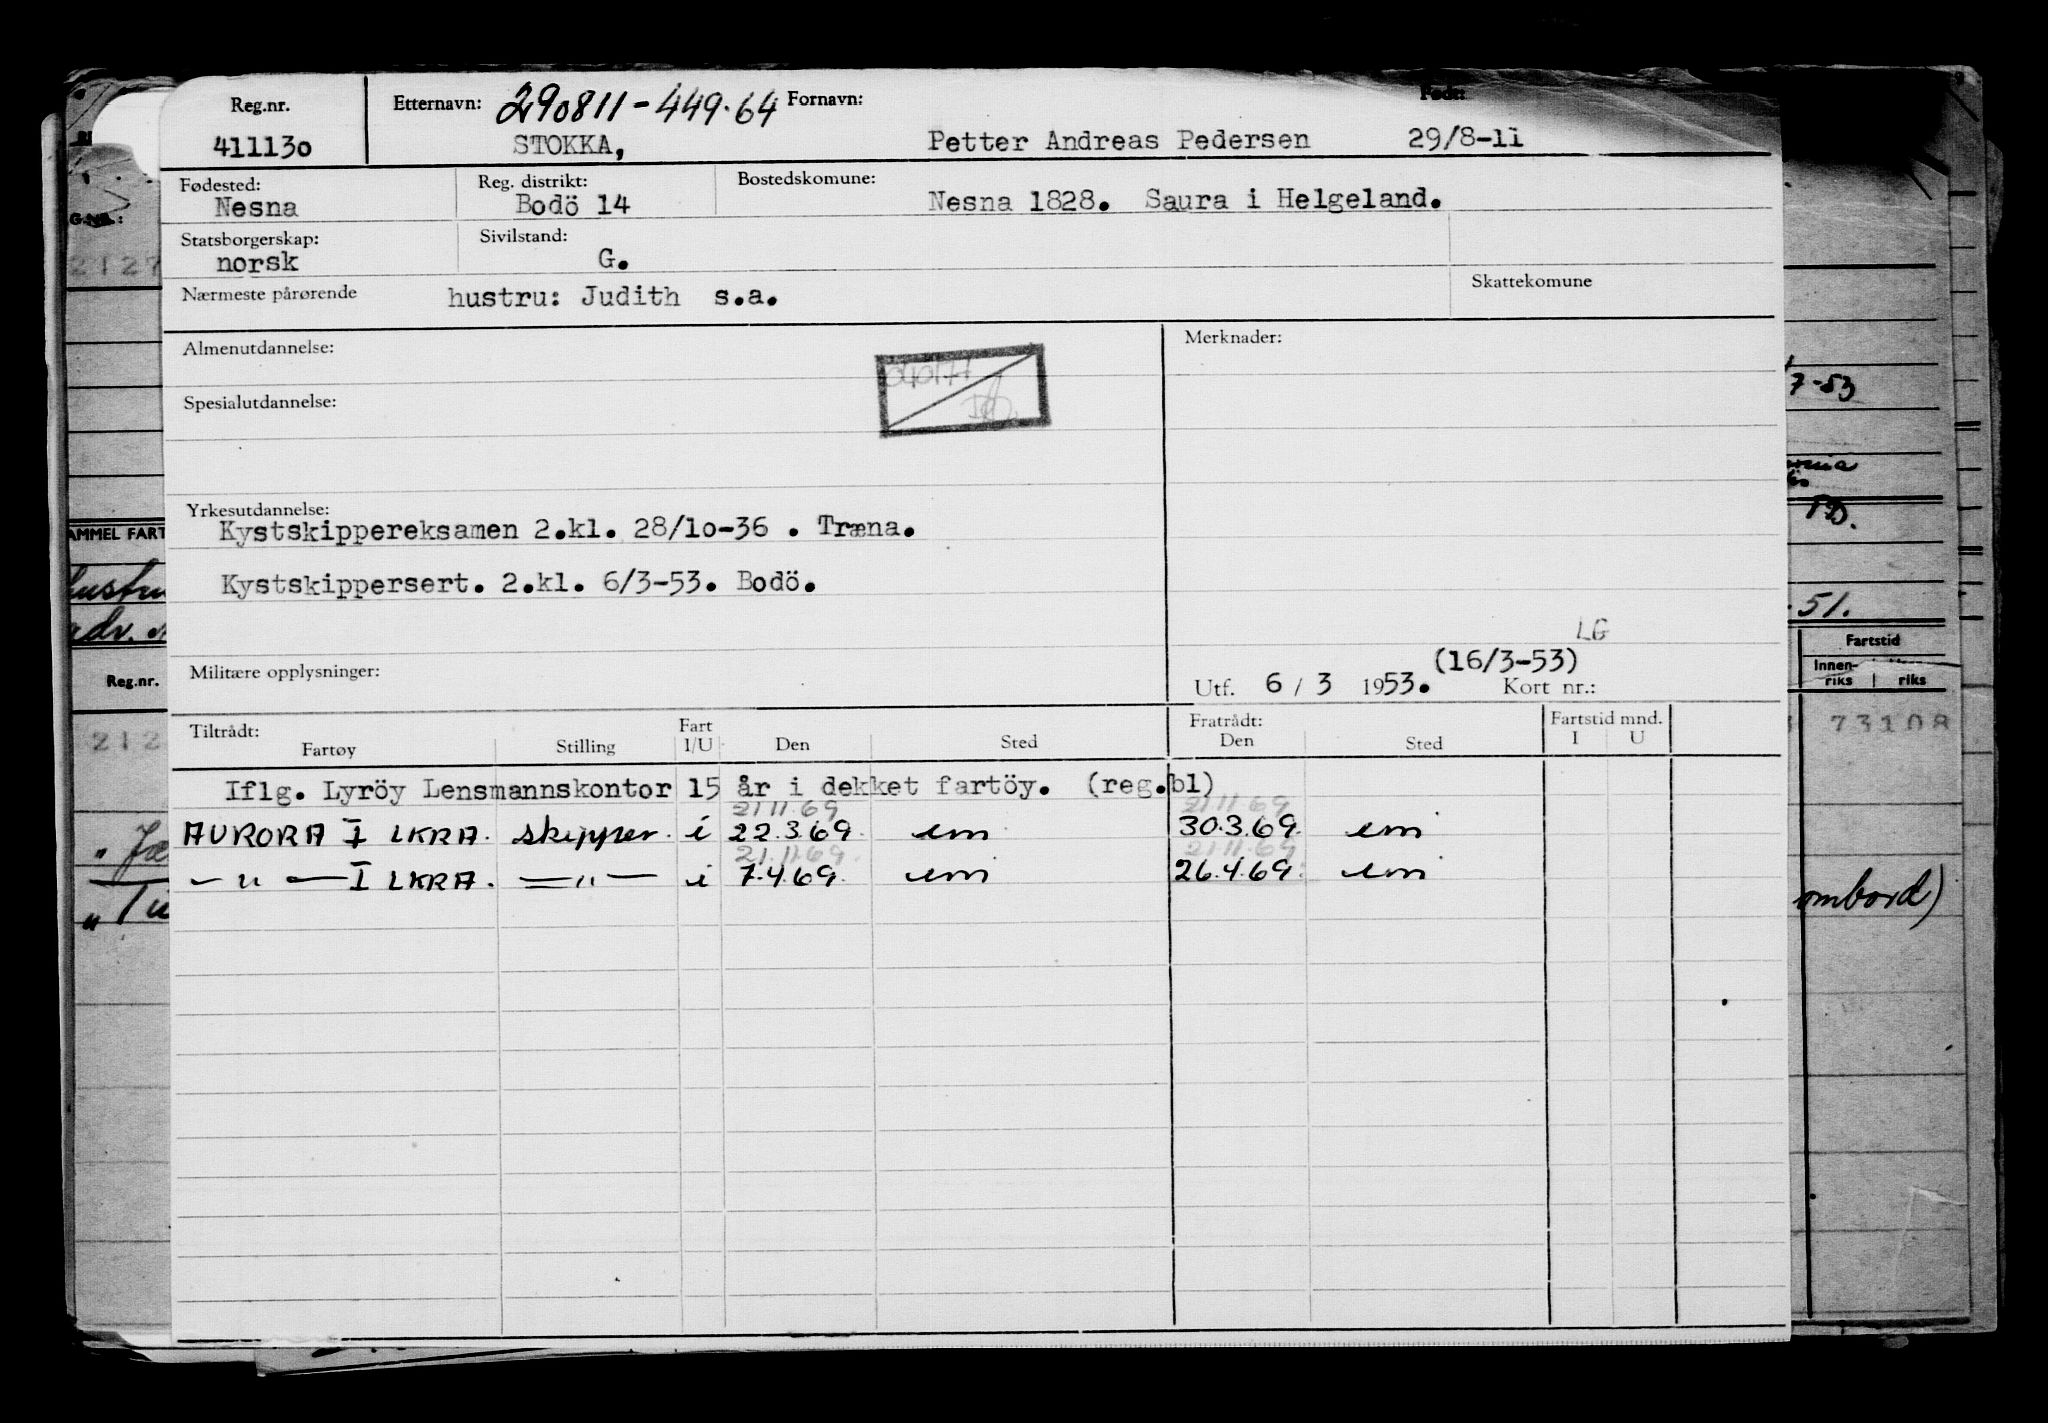 Reg.nr. Etternavn: 290811-449.64 Fornavn: Født:
411130 STOKKA, Petter Andreas Pedersen 29/8-11
Fødested: Reg. distrikt: Bostedskomune:
Nesna Bodö 14 Nesna 1828. Saura i Helgeland.
Statsborgerskap: Sivilstand:
norsk G.
Nærmeste pårørende hustru: Judith s.a. Skattekomune
Almenutdannelse: Merknader:
040177
Spesialutdannelse:
Yrkesutdannelse:
Kystskippereksamen 2.kl. 28/10-36 . Træna.
Kystskippersert. 2.kl. 6/3-53. Bodö.
LG
(16/3-53)
Militære opplysninger: Utf. 6 / 3 1953. Kort nr.:
Tiltrådt: Fart Fratrådt: Fartstid mnd.
Fartøy Stilling I/U Den Sted Den Sted I U
Iflg. Lyröy Lensmannskontor 15 år i dekket fartöy. (reg.bl)
21.11.69 21.11.69
AURORA I LKRA. skipper. i 22.3.69. um 30.3.69. um
21.11.69. 21.11.69
— " — I LKRA. — " — i 7.4.69. um 26.4.69. um
G.NR.:
2127
AMMEL FART
hustru
adv.
Reg.nr.
212
7-53
51.
Fartstid
Innen-
riks riks
73108
ombord)